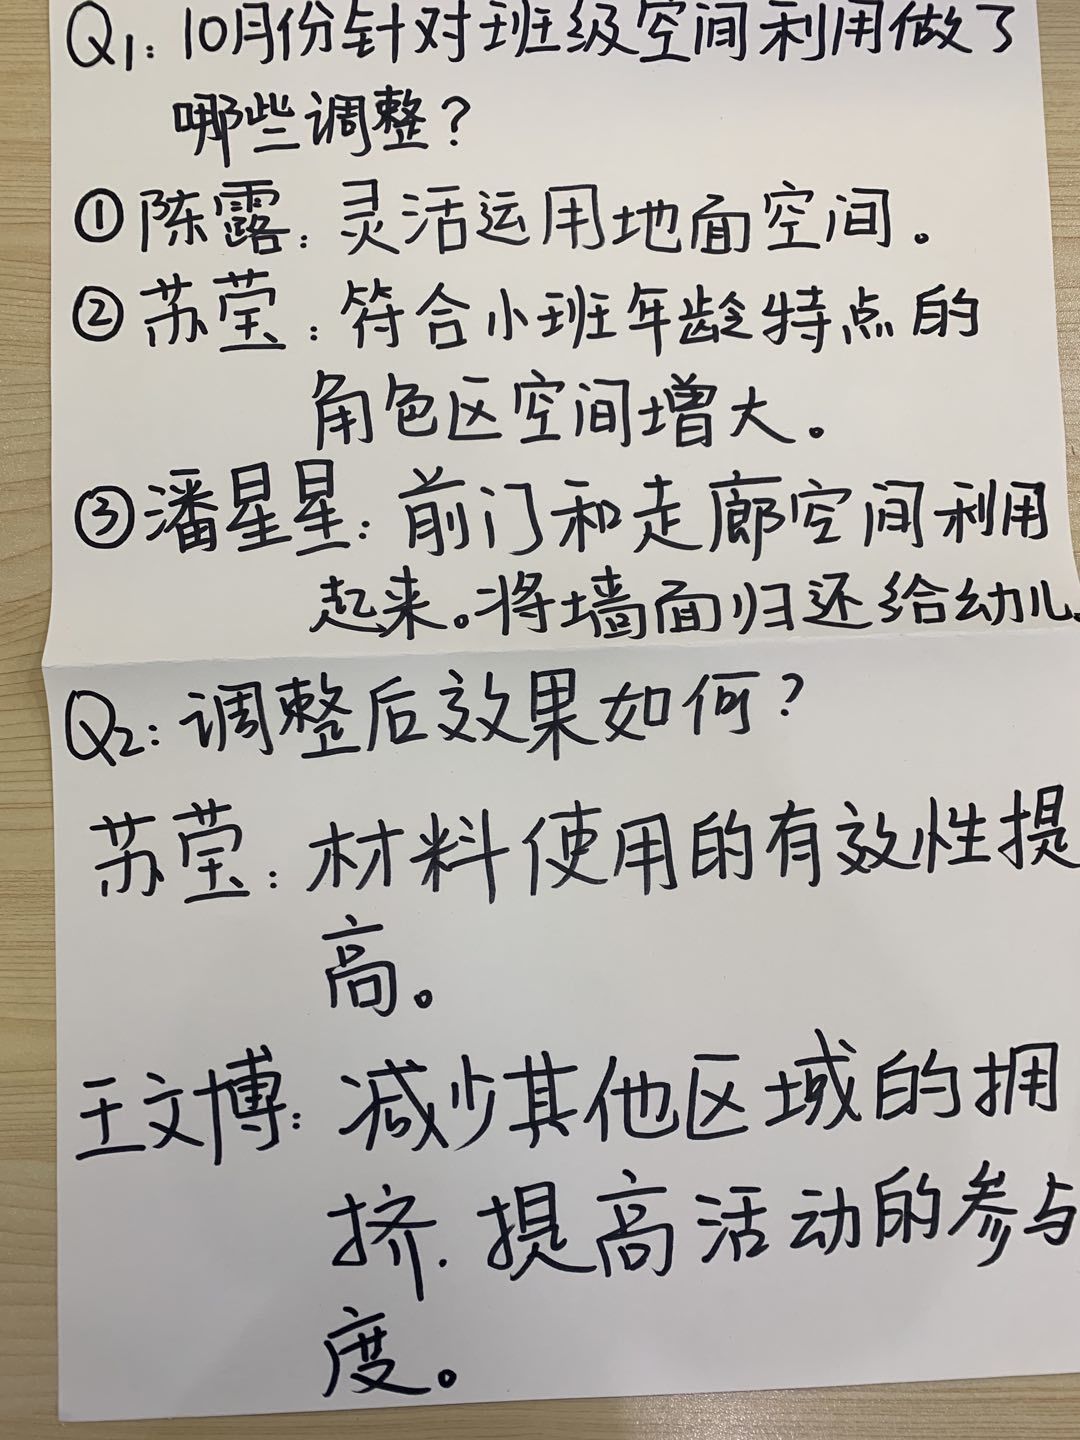 Q1：10月份针对班级空间利用做了
哪些调整？
①陈露：灵活运用地面空间。
②苏莹：符合小班年龄特点的
角色区空间增大。
③潘星星：前门和走廊空间利用
起来。将墙面归还给幼儿。
Q2：调整后效果如何？
苏莹：材料使用的有效性提
高。
王文博：减少其他区域的拥
挤．提高活动的参与
度。